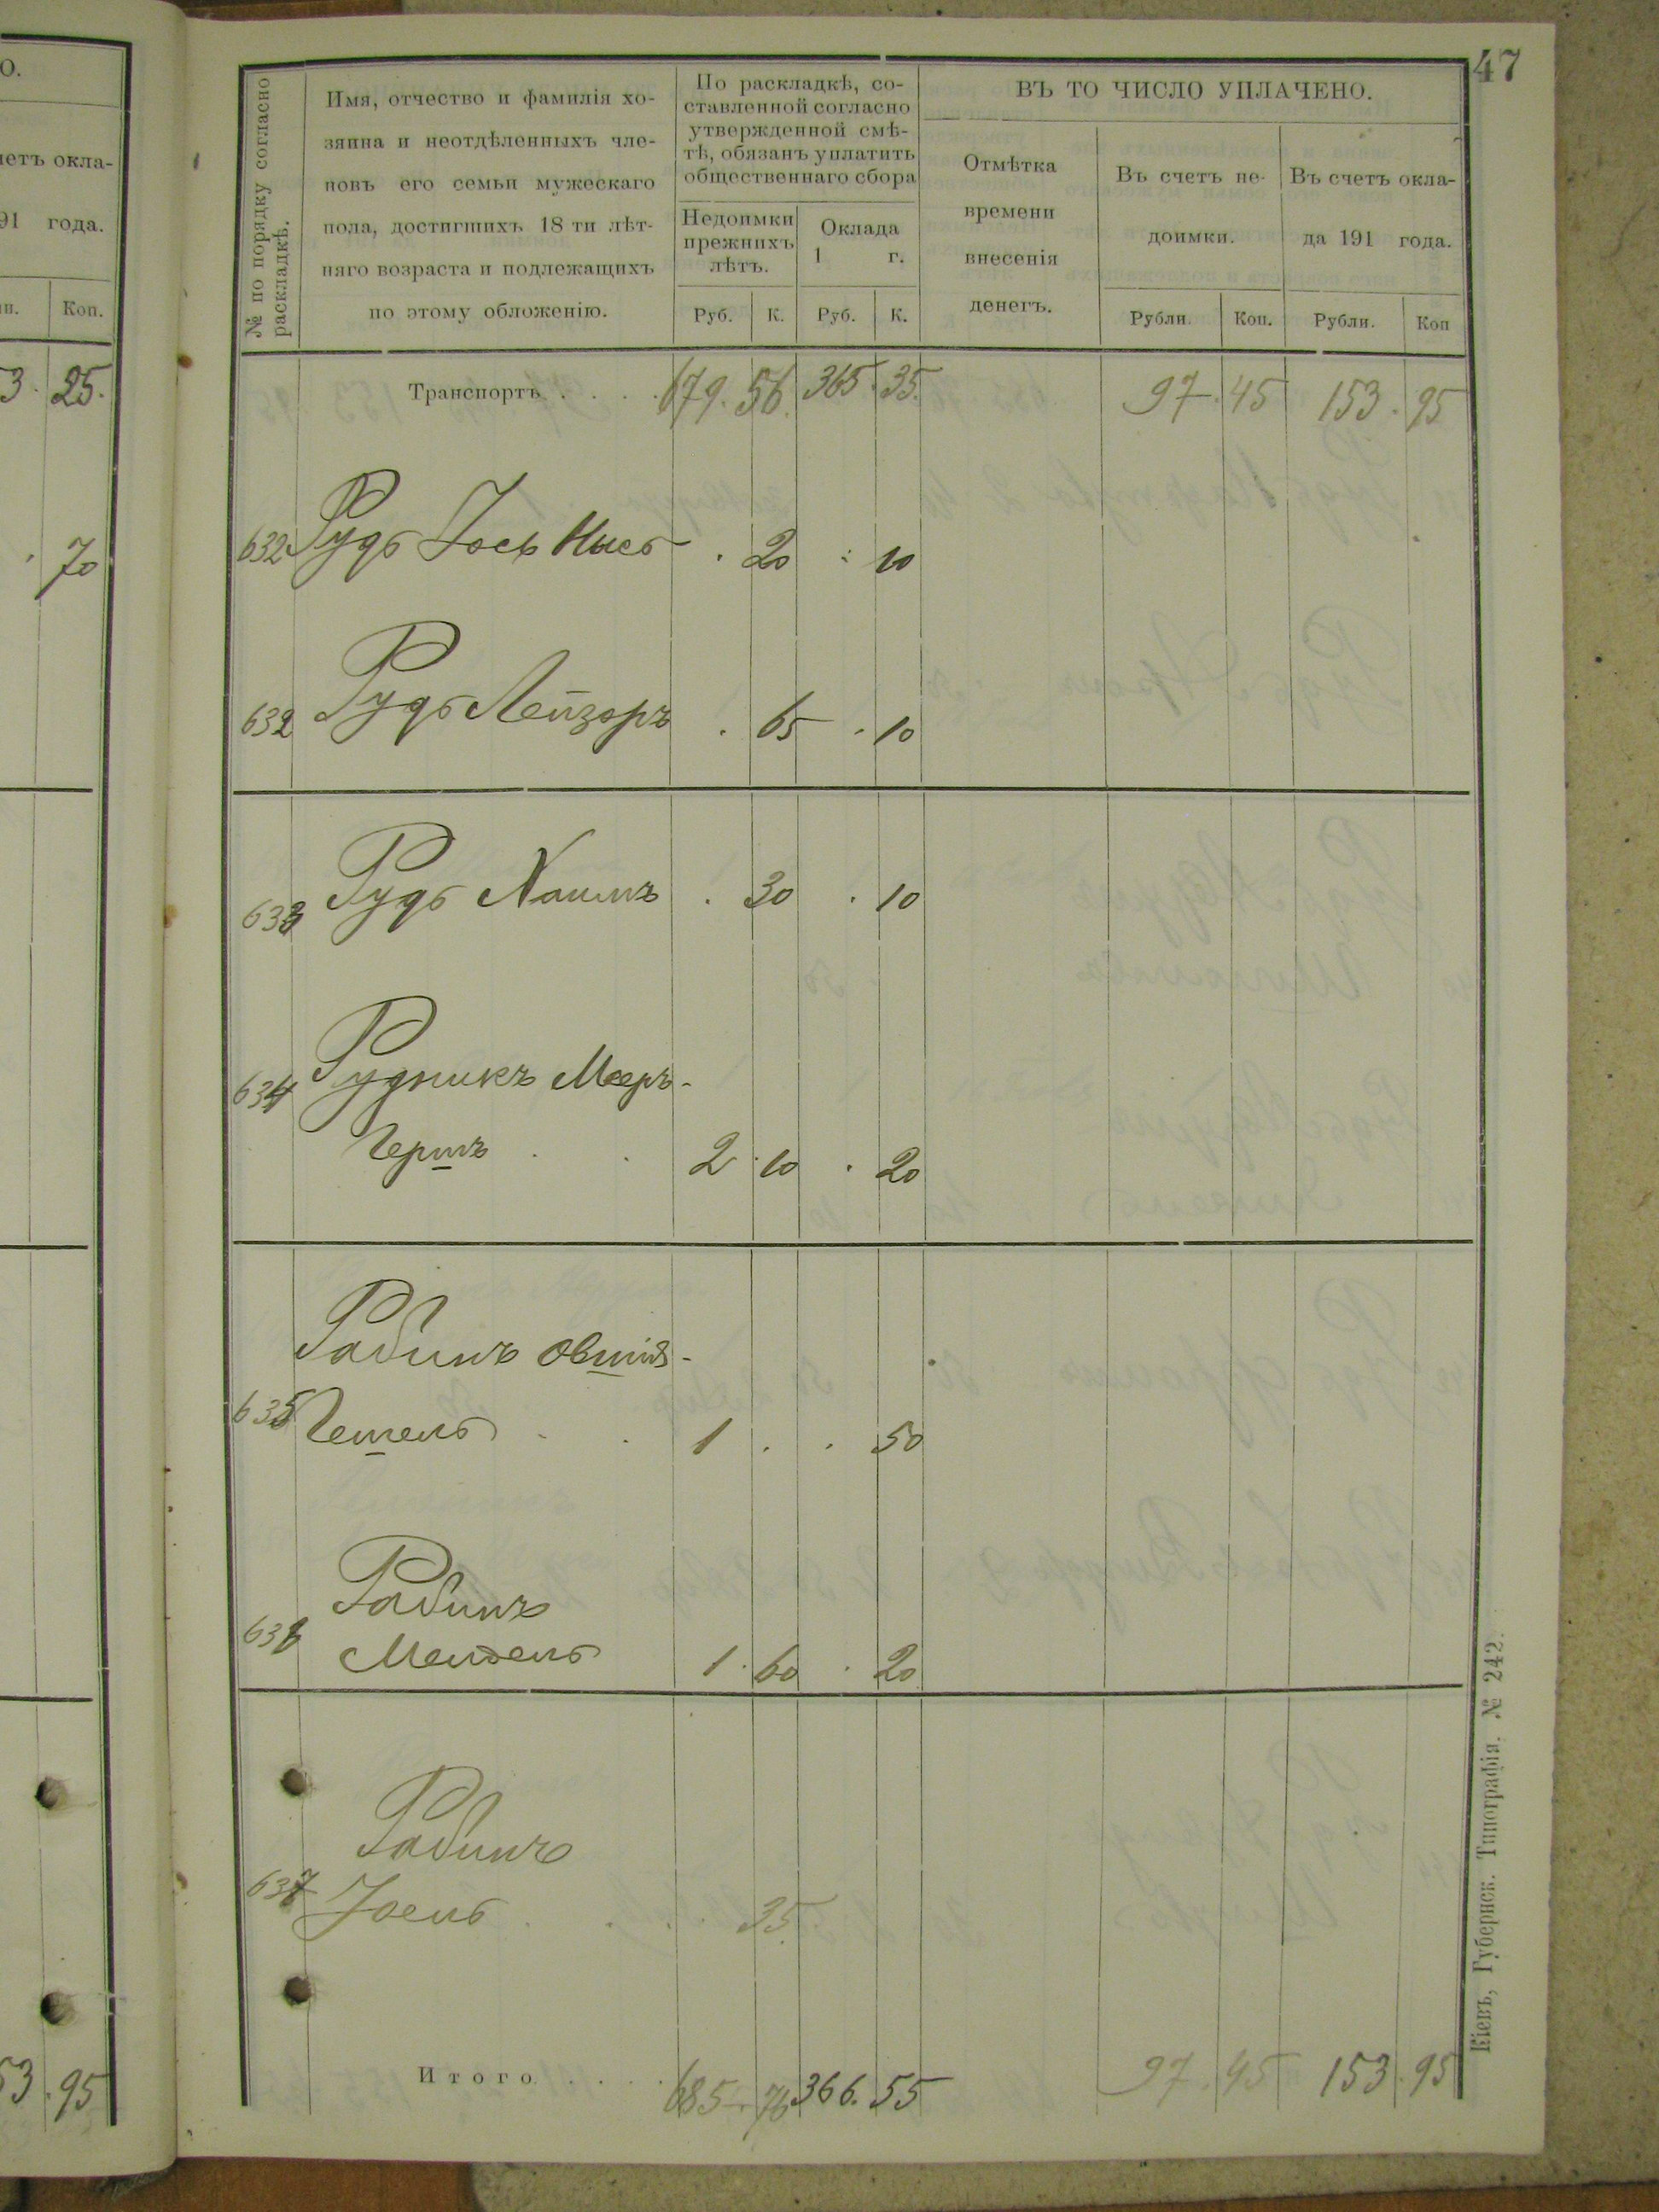 О.
47
четъ окла-
91 года.
Коп.
3. 25.
. 70
53 . 95
№ по порядку согласно
раскладкѣ.
Имя, отчество и фамилія хо-
зяина и неотдѣленныхъ чле-
новъ его семьи мужескаго
пола, достигшихъ 18 ти лѣт-
няго возраста и подлежащихъ
по этому обложенію.
По раскладкѣ, со-
ставленной согласно
утвержденной смѣ-
тѣ, обязанъ уплатить
общественнаго сбора
Недоимки
прежнихъ
лѣтъ.
Оклада
1 г.
Руб. К. Руб. К.
ВЪ ТО ЧИСЛО УПЛАЧЕНО.
Отмѣтка
времени
внесенія
денегъ.
Въ счетъ не-
доимки.
Рубли. Коп.
Въ счетъ окла-
да 191 года.
Рубли. Коп
Транспортъ . . . . 679. 56. 365. 35. 97. 45 153. 95
632 Рудь Іось Нысь . 20 : 10
632 Рудь Лейзоръ . 65 . 10
633 Рудь Хаимъ . 30 . 10
634 Рудникъ Мееръ-
Гершъ . . 2 . 10 . 20
Рабинъ Овшія-
635 Гешель . . 1 . . 50
Рабинъ
636 Мендель 1 . 60 . 20
Рабинъ
637 Іоель . . . 35.
Итого . . . . . 685. 76 366. 55 97. 45 153. 95
Кіевъ, Губернск. Типографія. № 242.